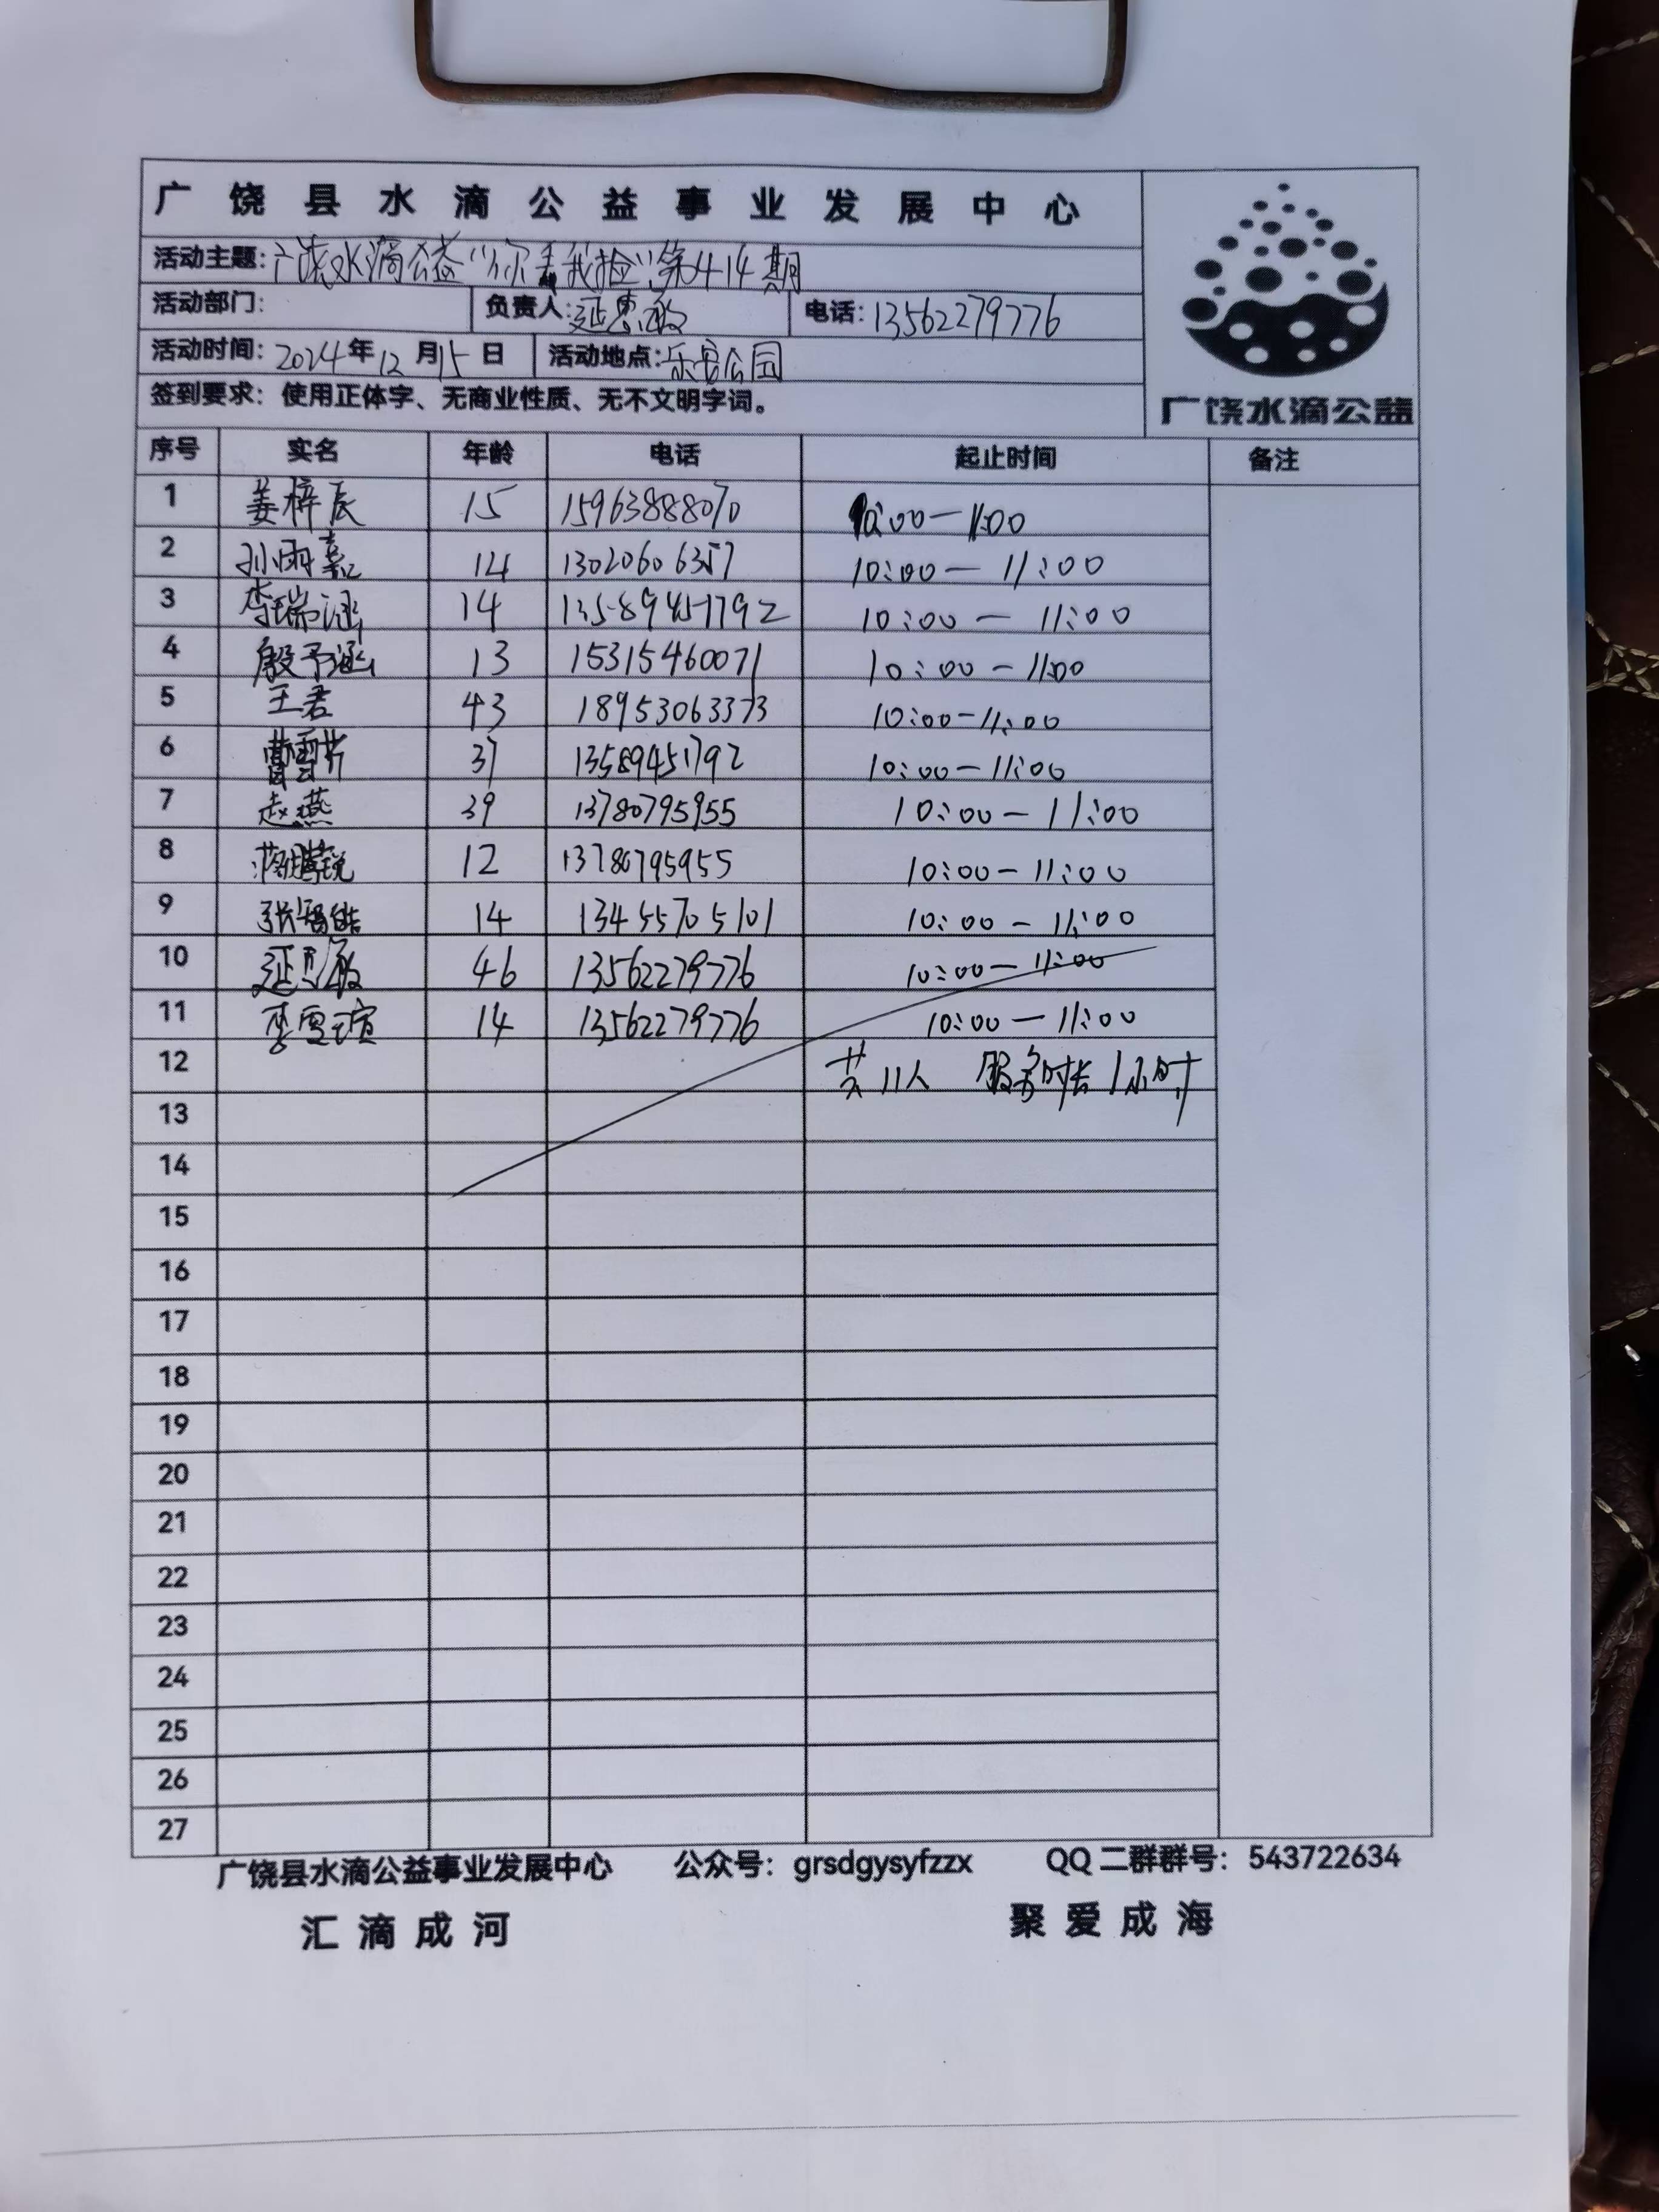 广饶县水滴公益事业发展中心
活动主题：广饶水滴公益"你丢我捡"第414期
活动部门： 负责人：延惠敏 电话：13562279776
活动时间：2024年12月15日 活动地点：乐安公园
签到要求：使用正体字、无商业性质、无不文明字词。
广饶水滴公益
序号 实名 年龄 电话 起止时间 备注
1 姜梓辰 15 15963888070 10:00—11:00
2 孙雨嘉 14 13020606357 10:00—11:00
3 李瑞涵 14 13589451792 10:00—11:00
4 殷予涵 13 15315460071 10:00-11:00
5 王君 43 18953063373 10:00-11:00
6 曹雪芹 37 13589451792 10:00-11:00
7 赵燕 39 13780795955 10:00-11:00
8 蒋鹏锐 12 13780795955 10:00-11:00
9 张 皓 14 13455705101 10:00-11:00
10 延惠敏 46 13562279776 10:00-11:00
11 李雪瑄 14 13562279776 10:00—11:00
12 共11人 服务时长1小时
13
14
15
16
17
18
19
20
21
22
23
24
25
26
27
广饶县水滴公益事业发展中心 公众号：grsdgysyfzzx QQ二群群号：543722634
汇滴成河 聚爱成海